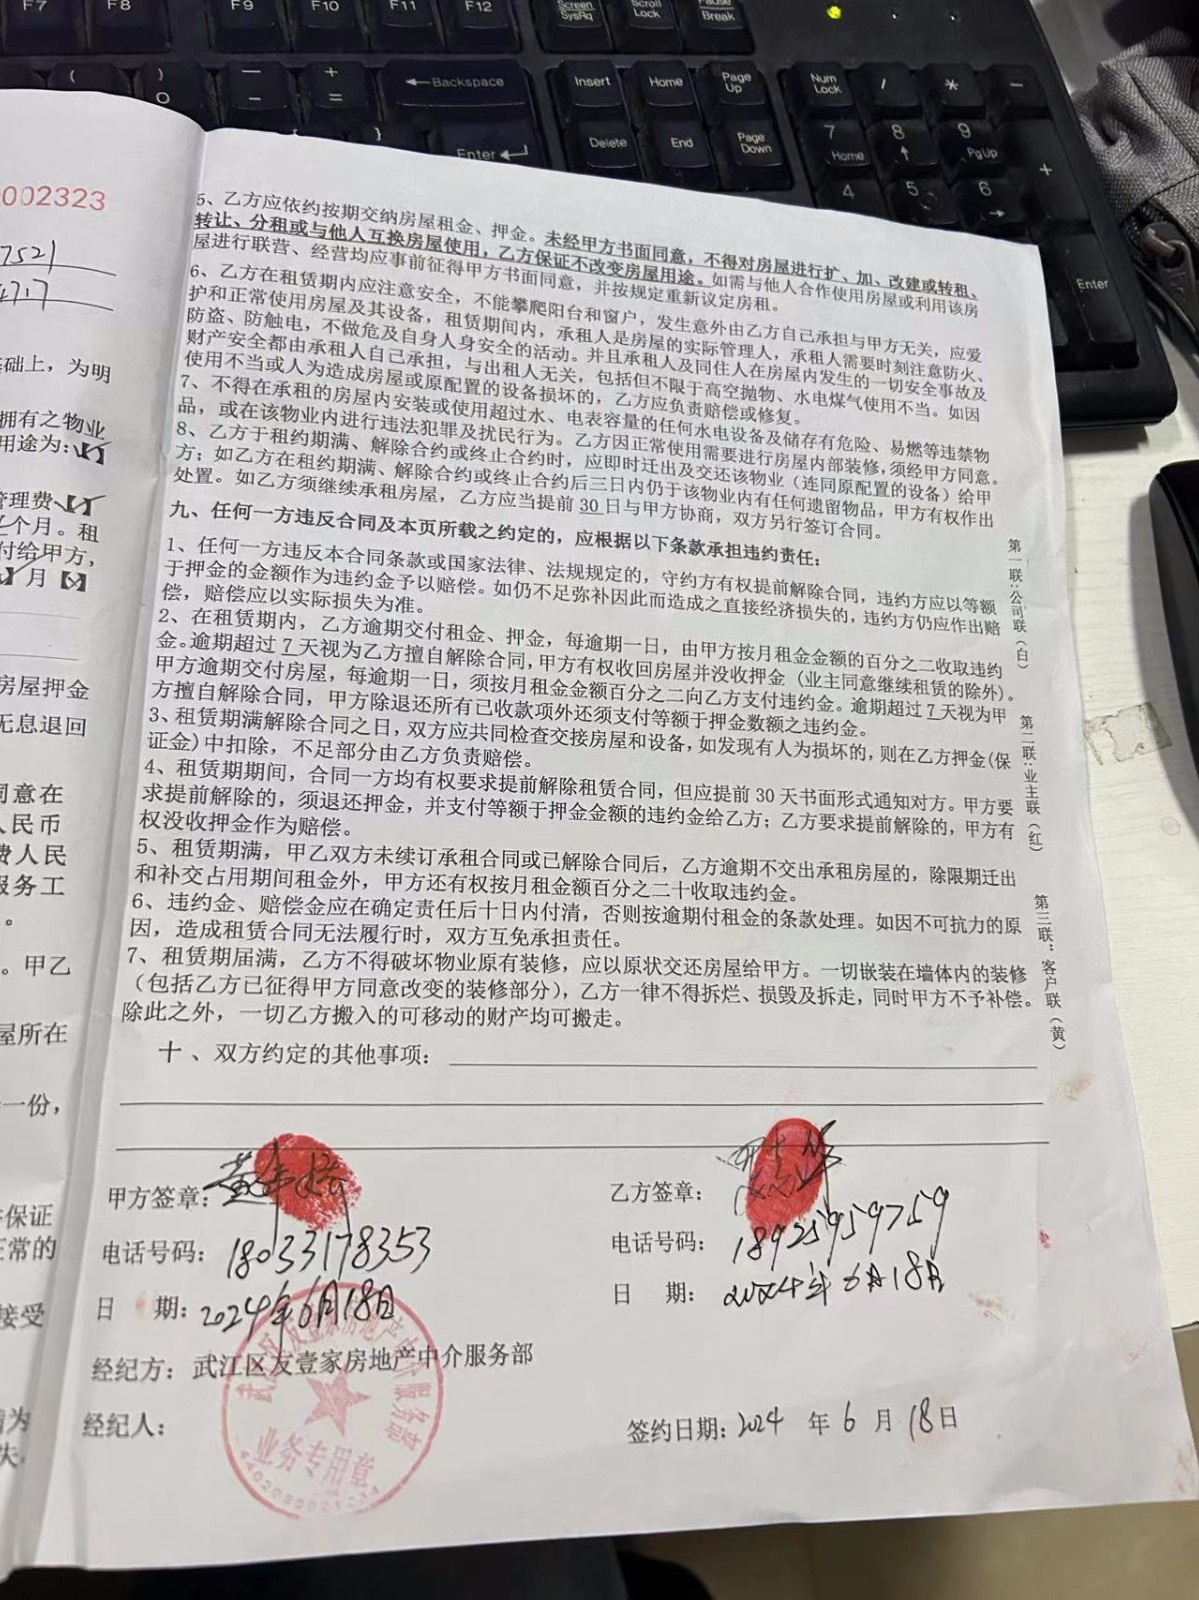 F7
F8
F9
F10
F11
F12
Screen
SysRq
Scroll
Lock
Pause
Break
(
)
0
—
-
+
=
←Backspace
Insert
Home
Page
Up
Num
Lock
/
*
-
}
Enter
Delete
End
Page
Down
7
Home
8
↑
9
PgUp
+
4
5
6
→
Enter
0002323
7521
4717
础上，为明
拥有之物业
用途为：【
管理费【
个月。租
付给甲方，
】月【
房屋押金
无息退回
同意在
人民币
费人民
服务工
。
。甲乙
屋所在
一份，
保证
正常的
接受
为
失
5、乙方应依约按期交纳房屋租金、押金。未经甲方书面同意，不得对房屋进行扩、加、改建或转租、
转让、分租或与他人互换房屋使用，乙方保证不改变房屋用途。如需与他人合作使用房屋或利用该房
屋进行联营、经营均应事前征得甲方书面同意，并按规定重新议定房租。
6、乙方在租赁期内应注意安全，不能攀爬阳台和窗户，发生意外由乙方自己承担与甲方无关，应爱
护和正常使用房屋及其设备，租赁期间内，承租人是房屋的实际管理人，承租人需要时刻注意防火、
防盗、防触电，不做危及自身人身安全的活动。并且承租人及同住人在房屋内发生的一切安全事故及
财产安全都由承租人自己承担，与出租人无关，包括但不限于高空抛物、水电煤气使用不当。如因
使用不当或人为造成房屋或原配置的设备损坏的，乙方应负责赔偿或修复。
7、不得在承租的房屋内安装或使用超过水、电表容量的任何水电设备及储存有危险、易燃等违禁物
品，或在该物业内进行违法犯罪及扰民行为。乙方因正常使用需要进行房屋内部装修，须经甲方同意。
8、乙方于租约期满、解除合约或终止合约时，应即时迁出及交还该物业（连同原配置的设备）给甲
方；如乙方在租约期满、解除合约或终止合约后三日内仍于该物业内有任何遗留物品，甲方有权作出
处置。如乙方须继续承租房屋，乙方应当提前 30 日与甲方协商，双方另行签订合同。
九、任何一方违反合同及本页所载之约定的，应根据以下条款承担违约责任：
1、任何一方违反本合同条款或国家法律、法规规定的，守约方有权提前解除合同，违约方应以等额
于押金的金额作为违约金予以赔偿。如仍不足弥补因此而造成之直接经济损失的，违约方仍应作出赔
偿，赔偿应以实际损失为准。
2、在租赁期内，乙方逾期交付租金、押金，每逾期一日，由甲方按月租金金额的百分之二收取违约
金。逾期超过 7 天视为乙方擅自解除合同，甲方有权收回房屋并没收押金（业主同意继续租赁的除外）。
甲方逾期交付房屋，每逾期一日，须按月租金金额百分之二向乙方支付违约金。逾期超过 7 天视为甲
方擅自解除合同，甲方除退还所有已收款项外还须支付等额于押金数额之违约金。
3、租赁期满解除合同之日，双方应共同检查交接房屋和设备，如发现有人为损坏的，则在乙方押金（保
证金）中扣除，不足部分由乙方负责赔偿。
4、租赁期期间，合同一方均有权要求提前解除租赁合同，但应提前 30 天书面形式通知对方。甲方要
求提前解除的，须退还押金，并支付等额于押金金额的违约金给乙方；乙方要求提前解除的，甲方有
权没收押金作为赔偿。
5、租赁期满，甲乙双方未续订承租合同或已解除合同后，乙方逾期不交出承租房屋的，除限期迁出
和补交占用期间租金外，甲方还有权按月租金额百分之二十收取违约金。
6、违约金、赔偿金应在确定责任后十日内付清，否则按逾期付租金的条款处理。如因不可抗力的原
因，造成租赁合同无法履行时，双方互免承担责任。
7、租赁期届满，乙方不得破坏物业原有装修，应以原状交还房屋给甲方。一切嵌装在墙体内的装修
（包括乙方已征得甲方同意改变的装修部分），乙方一律不得拆烂、损毁及拆走，同时甲方不予补偿。
除此之外，一切乙方搬入的可移动的财产均可搬走。
十、双方约定的其他事项：
第一联：公司联（白）
第二联：业主联（红）
第三联：客户联（黄）
甲方签章：
乙方签章：
电话号码：18033178353
电话号码：18925959759
日 期：2024年6月18日
日 期：2024年6月18日
经纪方：武江区友壹家房地产中介服务部
经纪人：
签约日期：2024 年 6 月 18 日
武江区友壹家房地产中介服务部
业务专用章